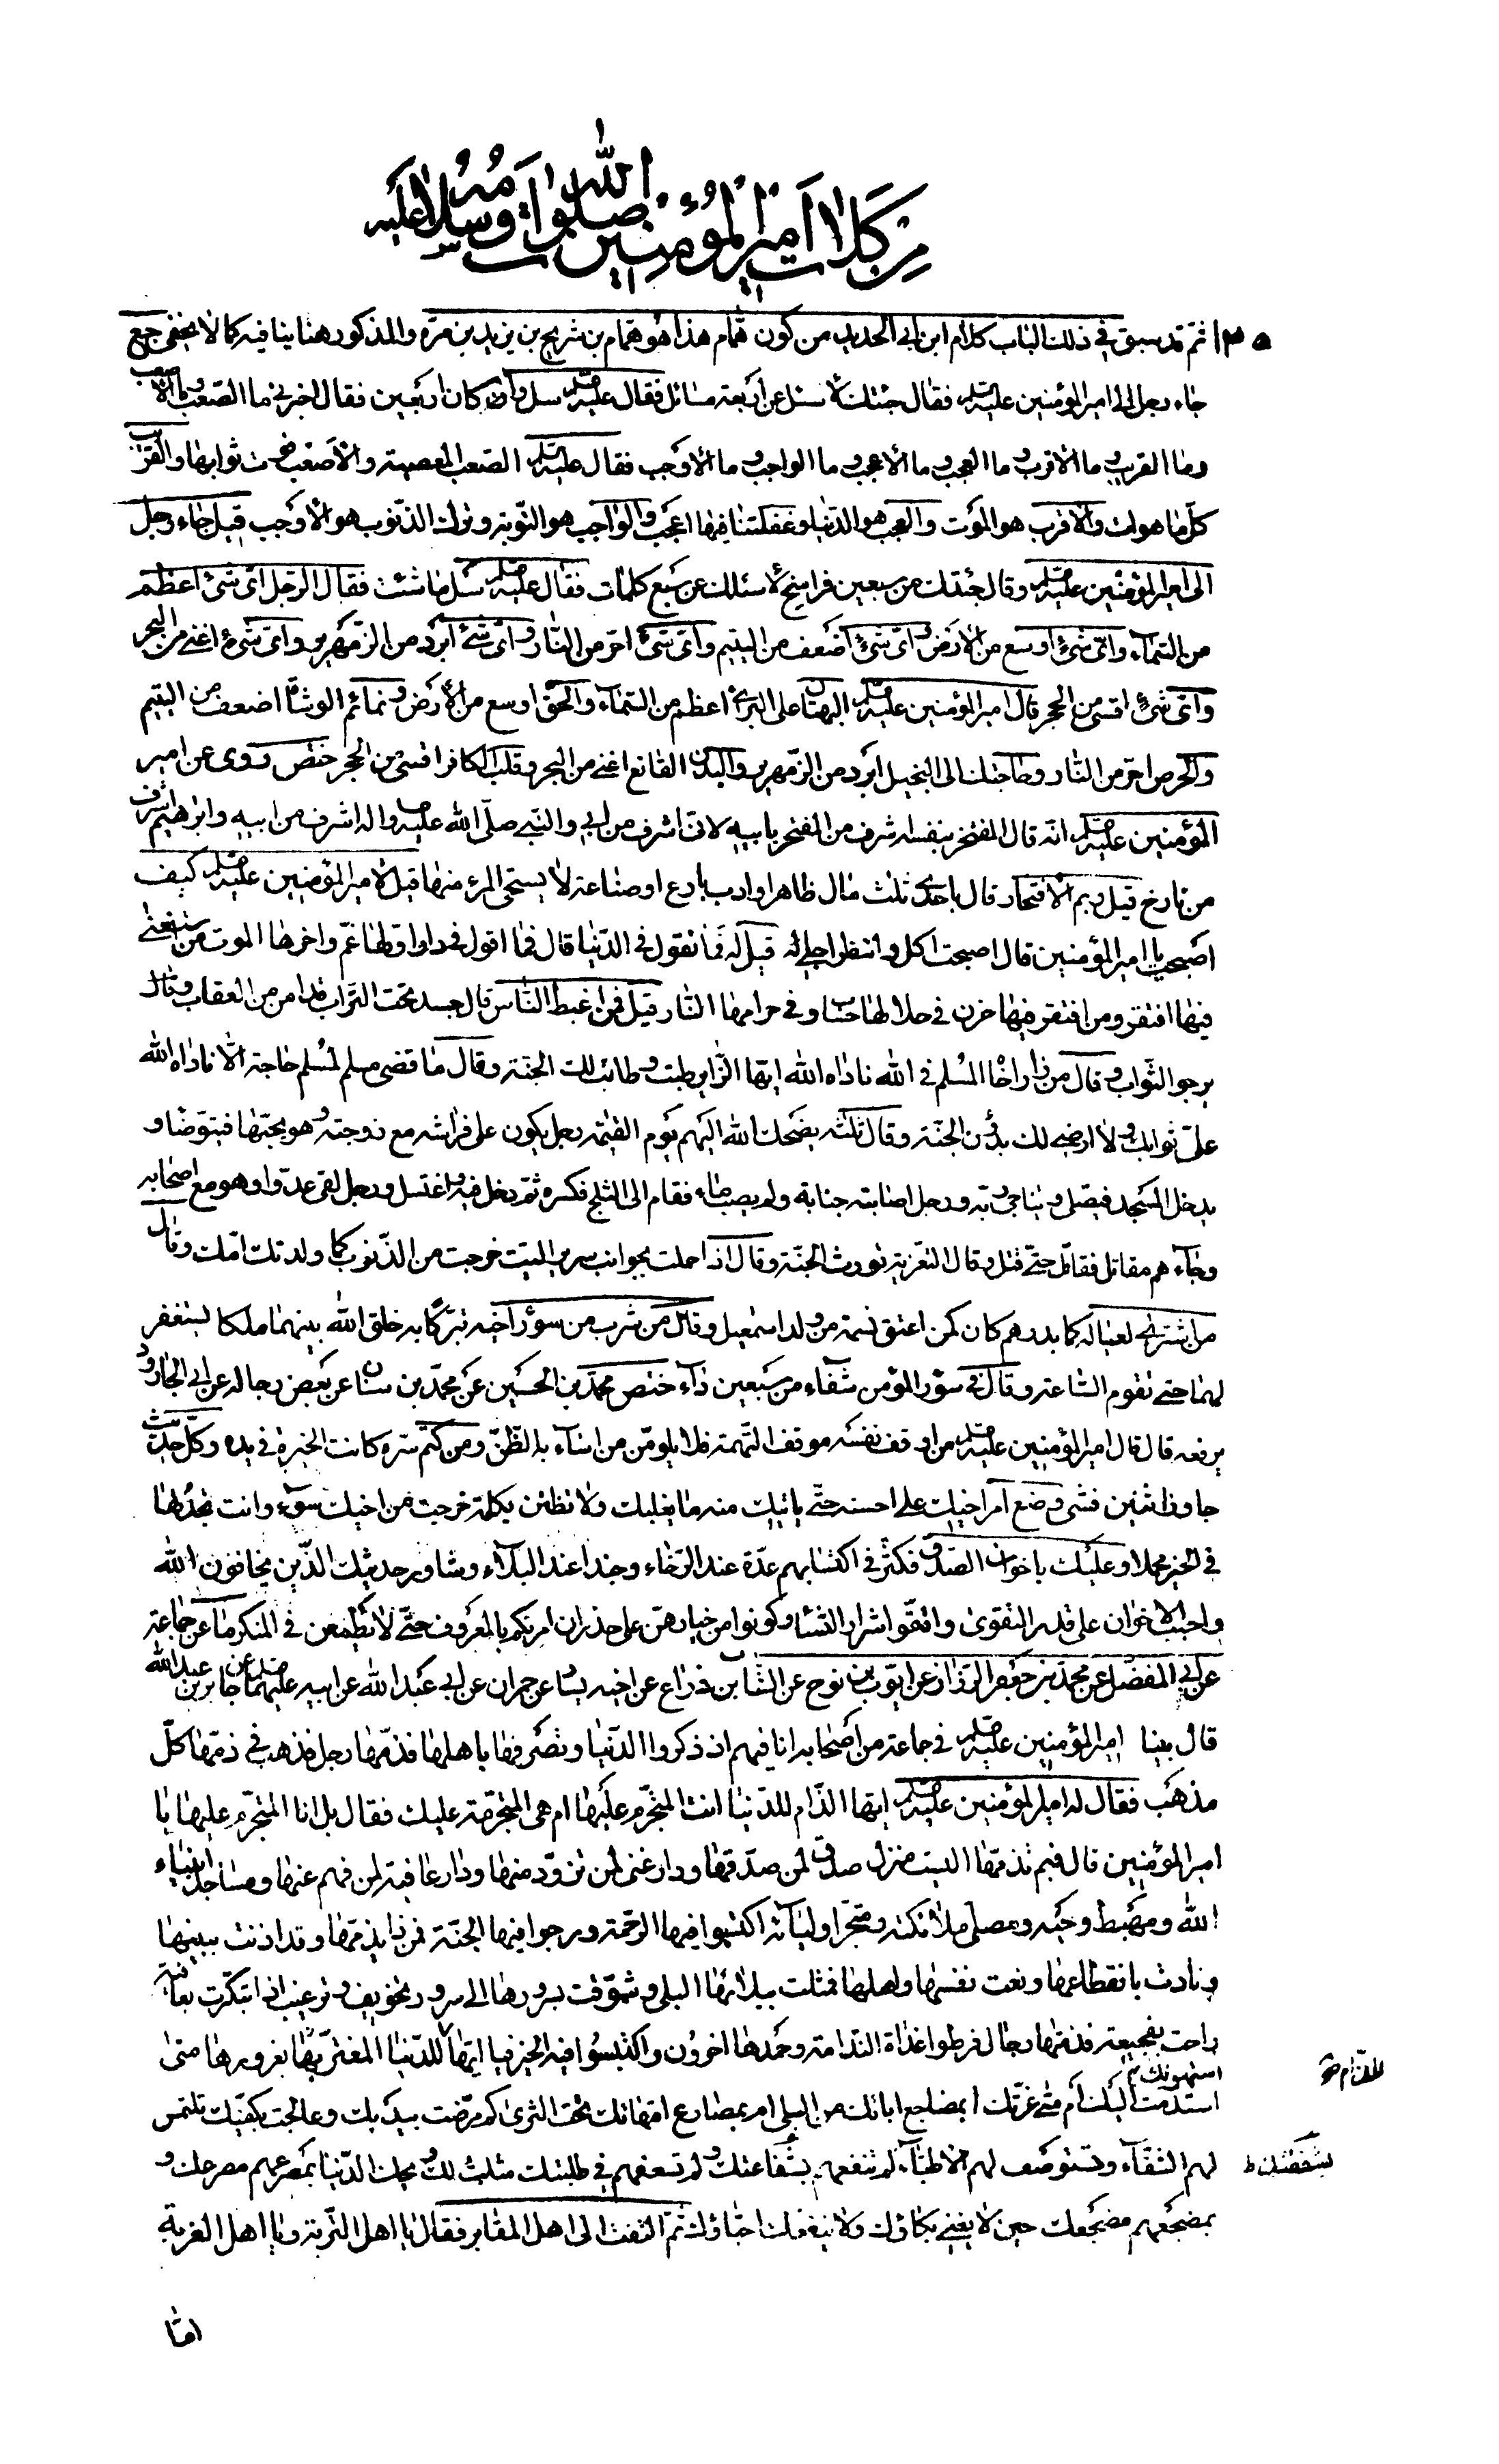 من كلمات امير المؤمنين صلوات الله وسلامه عليه
١٣٥ ثمّ قد سبق في ذلك الباب كلام ابن ابي الحديد من كون همّام هذا هو همّام بن شريح بن يزيد بن مرّة والمذكور هنا ينافيه كما لا يخفى جع
جاء رجل الى امير المؤمنين عليه السلم فقال جئتك لاسئل عن اربعة مسائل فقال عليه السلم سل وان كان اربعين فقال اخبرني ما الصّعب وما الاصعب
وما القريب وما الاقرب وما العجب وما الاعجب وما الواجب وما الاوجب فقال عليه السلم الصّعب المعصية والاصعب فوت ثوابها والقريب
كلّ ما هو ات والاقرب هو الموت والعجب هو الدّنيا وغفلتنا فيها اعجب والواجب هو التّوبة وترك الذّنوب هو الاوجب قيل جاء رجل
الى امير المؤمنين عليه السلم وقال جئتك من سبعين فراسخ لاسئلك عن سبع كلمات فقال عليه السلم سل ما شئت فقال الرّجل ايّ شيء اعظم
من السّماء وايّ شيء اوسع من الارض وايّ شيء اضعف من اليتيم وايّ شيء احرّ من النّار وايّ شيء ابرد من الزّمهرير وايّ شيء اغنى من البحر
وايّ شيء اقسى من الحجر قال امير المؤمنين عليه السلم البهتان على البريء اعظم من السّماء والحقّ اوسع من الارض ونمائم الوشاة اضعف من اليتيم
والحرص احرّ من النّار وحاجتك الى البخيل ابرد من الزّمهرير والبدن القانع اغنى من البحر وقلب الكافر اقسى من الحجر ختص روى عن امير
المؤمنين عليه السلم انّه قال المفتخر بنفسه اشرف من المفتخر بابيه لانّي اشرف من ابي والنّبي صلّى الله عليه واله اشرف من ابيه وابرهيم اشرف
من تارخ قيل وبم الافتخار قال باحدى ثلث مال ظاهر او ادب بارع او صناعة لا يستحي المرء منها قيل لامير المؤمنين عليه السلم كيف
اصبحت يا امير المؤمنين قال اصبحت اكل وانتظر اجلي قيل له فما تقول في الدّنيا قال فما اقول في دار اوّلها غمّ واخرها الموت من استغنى
فيها افتقر ومن افتقر فيها حزن في حلالها حساب وفي حرامها النّار قيل فمن اغبط النّاس قال جسد تحت التّراب قد امن من العقاب وقال
يرجو الثّواب وقال من زار اخا المسلم في الله ناداه الله ايّها الزّاير طبت وطابت لك الجنّة وقال ما قضى مسلم لمسلم حاجة الّا ناداه الله
عليّ ثوابك ولا ارضى لك بدون الجنّة وقال ثلثة يضحك الله اليهم يوم القيمة رجل يكون على فراشه مع زوجته وهو يحبّها فيتوضّا و
يدخل المسجد فيصلّي ويناجي ربّه ورجل اصابته جنابة ولم يصب ماء فقام الى الثّلج فكسره ثمّ دخل فيه واغتسل ورجل لقى عدوّا وهو مع اصحابه
وجاءهم مقاتل فقاتل حتّى قتل وقال التّعزية تورث الجنّة وقال اذا حملت بجوانب سرير الميّت خرجت من الذّنوب كما ولدتك امّك وقال
من اشترى لعياله لحما بدرهم كان كمن اعتق نسمة من ولد اسمعيل وقال من شرب من سؤر اخيه تبرّكا به خلق الله بينهما ملكا يستغفر
لهما حتّى تقوم السّاعة وقال في سؤر المؤمن شفاء من سبعين داء ختص محمّد بن الحسين عن محمّد بن سنان عن بعض رجاله عن ابي الجارود
يرفعه قال قال امير المؤمنين عليه السلم من اوقف نفسه موقف التّهمة فلا يلومّن من اساء به الظّنّ ومن كتم سرّه كانت الخيرة في يده وكلّ حديث
جاوز اثنين فشى وضع امر اخيك على احسنه حتّى ياتيك منه ما يغلبك ولا تظنّن بكلمة خرجت من اخيك سوء وانت تجد لها
في الخير محملا وعليك باخوان الصّدق فكثّر في اكتسابهم عدّة عند الرّخاء وجندا عند البلاء وشاور حديثك الّذين يخافون الله
واحبب الاخوان على قدر التّقوى واتّقوا شرار النّساء وكونوا من خيارهنّ على حذر ان امرنكم بالمعروف حتّى لا يطمعن في المنكر ما عن جماعة
عن ابي المفضّل عن محمّد بن جعفر الرّزاز عن ايّوب بن نوح عن الشّا بن ذراع عن اخيه يسّا عن حمران عن ابي عبد الله عن ابيه عليهما السلم عن جابر بن عبد الله
قال بينا امير المؤمنين عليه السلم في جماعة من اصحابه انا فيهم اذ ذكروا الدّنيا وتصرّفها باهلها فذمّها رجل فذهب في ذمّها كلّ
مذهب فقال له امير المؤمنين عليه السلم ايّها الذّام للدّنيا انت المتجرّم عليها ام هي المتجرّمة عليك فقال بل انا المتجرّم عليها يا
امير المؤمنين قال فبم تذمّها اليست منزل صدق لمن صدّقها ودار غنى لمن تزوّد منها ودار عافية لمن فهم عنها ومساجد انبياء
الله ومهبط وحيه ومصلّى ملائكته ومتجر اوليائه اكتسبوا فيها الرّحمة ورجوا فيها الجنّة فمن ذا يذمّها وقد اذنت ببينها
ونادت بانقطاعها ونعت نفسها واهلها فمثلت ببلائها البلى وشوّقت بسرورها الى سرور تخويف وترغيب ابتكرت بعافية
راحت بفجيعة فذمّها رجال فرطوا غداة النّدامة وحمدها اخرون واكتسبوا فيه الخير فيا ايّها للدّنيا المغترّ بها بغرورها متى
للذّام خ
استهوتك م
استذمّت اليك ام متى غرّتك ابمضاجع ابائك من البلى ام بمصارع امّهاتك تحت الثّرى كم مرّضت بيديك وعالجت بكفّيك تلتمس
لهم الشّفاء وتستوصف لهم الاطبّاء لم تنفعهم بشفاعتك ولم تسعفهم في طلبتك مثلت لك ويحك الدّنيا بمصرعهم مصرعك و
بمضجعهم مضجعك حين لا يغني بكاؤك ولا ينفعك احبّاؤك ثمّ التفت الى اهل المقابر فقال يا اهل التّربة ويا اهل الغربة
امّا